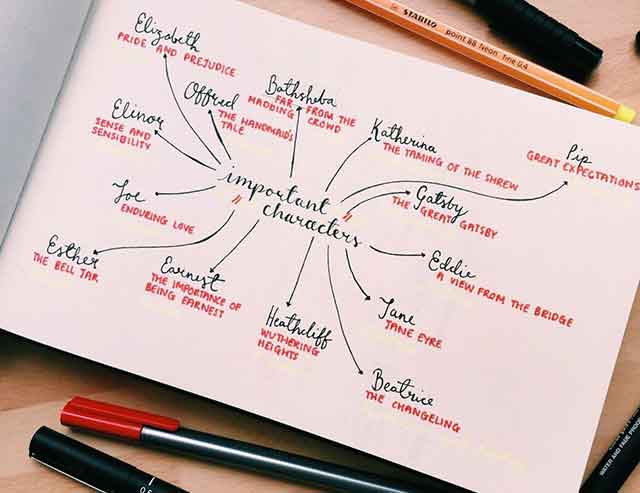 Elizabeth
PRIDE AND PREJUDICE
Offred
THE HANDMAID'S
TALE
Bathsheba
FAR FROM THE
MADDING CROWD
Katherina
THE TAMING OF THE SHREW
Pip
GREAT EXPECTATIONS
Elinor
SENSE AND
SENSIBILITY
important
characters
Gatsby
THE GREAT GATSBY
Joe
ENDURING LOVE
Eddie
A VIEW FROM THE BRIDGE
Esther
THE BELL JAR
Earnest
THE IMPORTANCE OF
BEING EARNEST
Jane
JANE EYRE
Heathcliff
WUTHERING
HEIGHTS
Beatrice
THE CHANGELING
STABILO point 88 Neon fine 0.4
WATER AND FADE PROOF
0.5